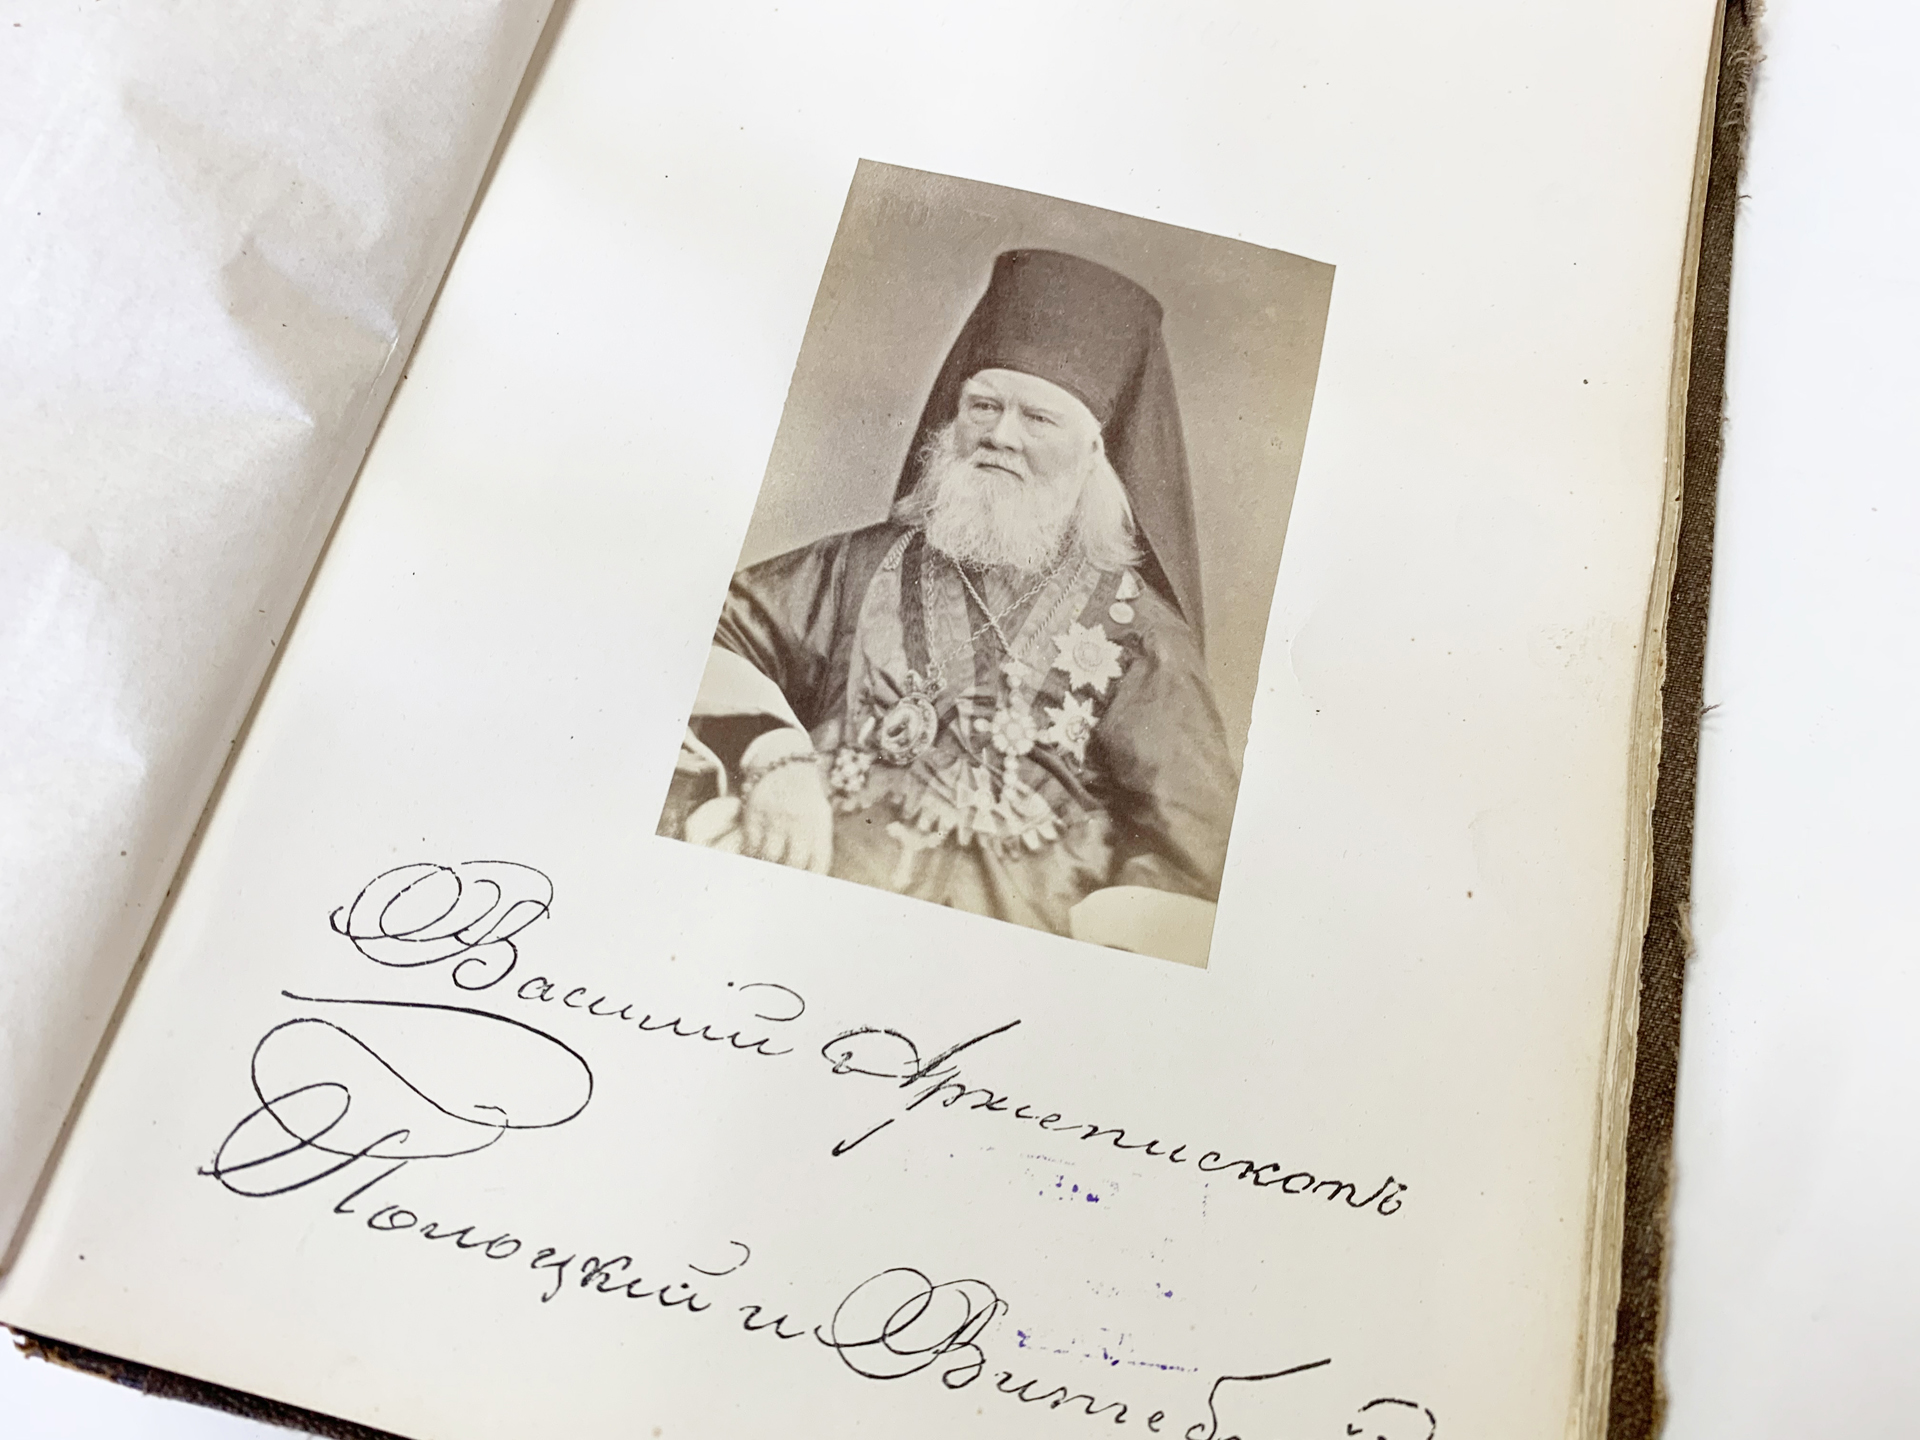 Василій Архіепископъ
Полоцкій и